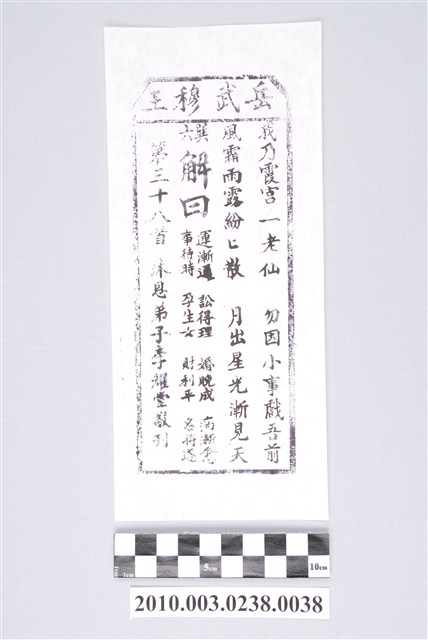 岳武穆王
我乃霞宮一老仙 勿因小事戲吾前
風霜雨露紛匕散 月出星光漸見天
巽六
解曰
運漸通 訟得理 婚晚成 病漸愈
事待時 孕生女 財利平 名將遂
第三十八首 沐恩弟子李耀堂敬刊
1cm 5cm 10cm
2010.003.0238.0038